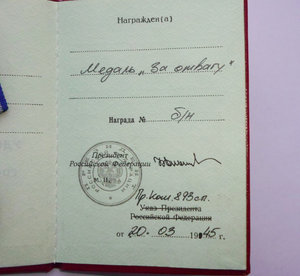 Награжден(а)
Медаль „За отвагу"
Награда № б/н
Президент
Российской Федерации
М. П.
Пр. Ком. 893 сп.
Указ Президента
Российской Федерации
от «20» 03 1945 г.